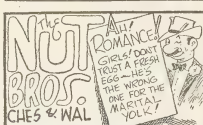 The
NUT
BROS.
CHES & WAL
AH!
ROMANCE!
GIRLS! DON'T
TRUST A FRESH
EGG—HE'S
THE WRONG
ONE FOR THE
MARITAL
YOLK!